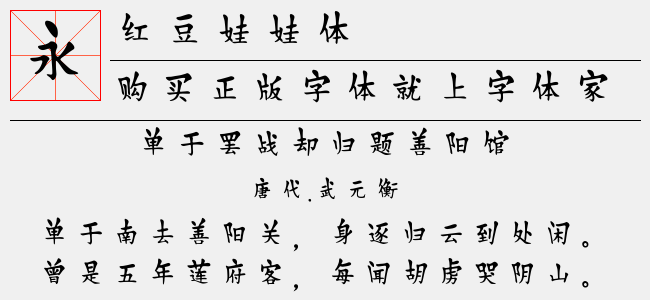 永
红豆娃娃体
购买正版字体就上字体家
单于罢战却归题善阳馆
唐代.武元衡
单于南去善阳关，身逐归云到处闲。
曾是五年莲府客，每闻胡虏哭阴山。